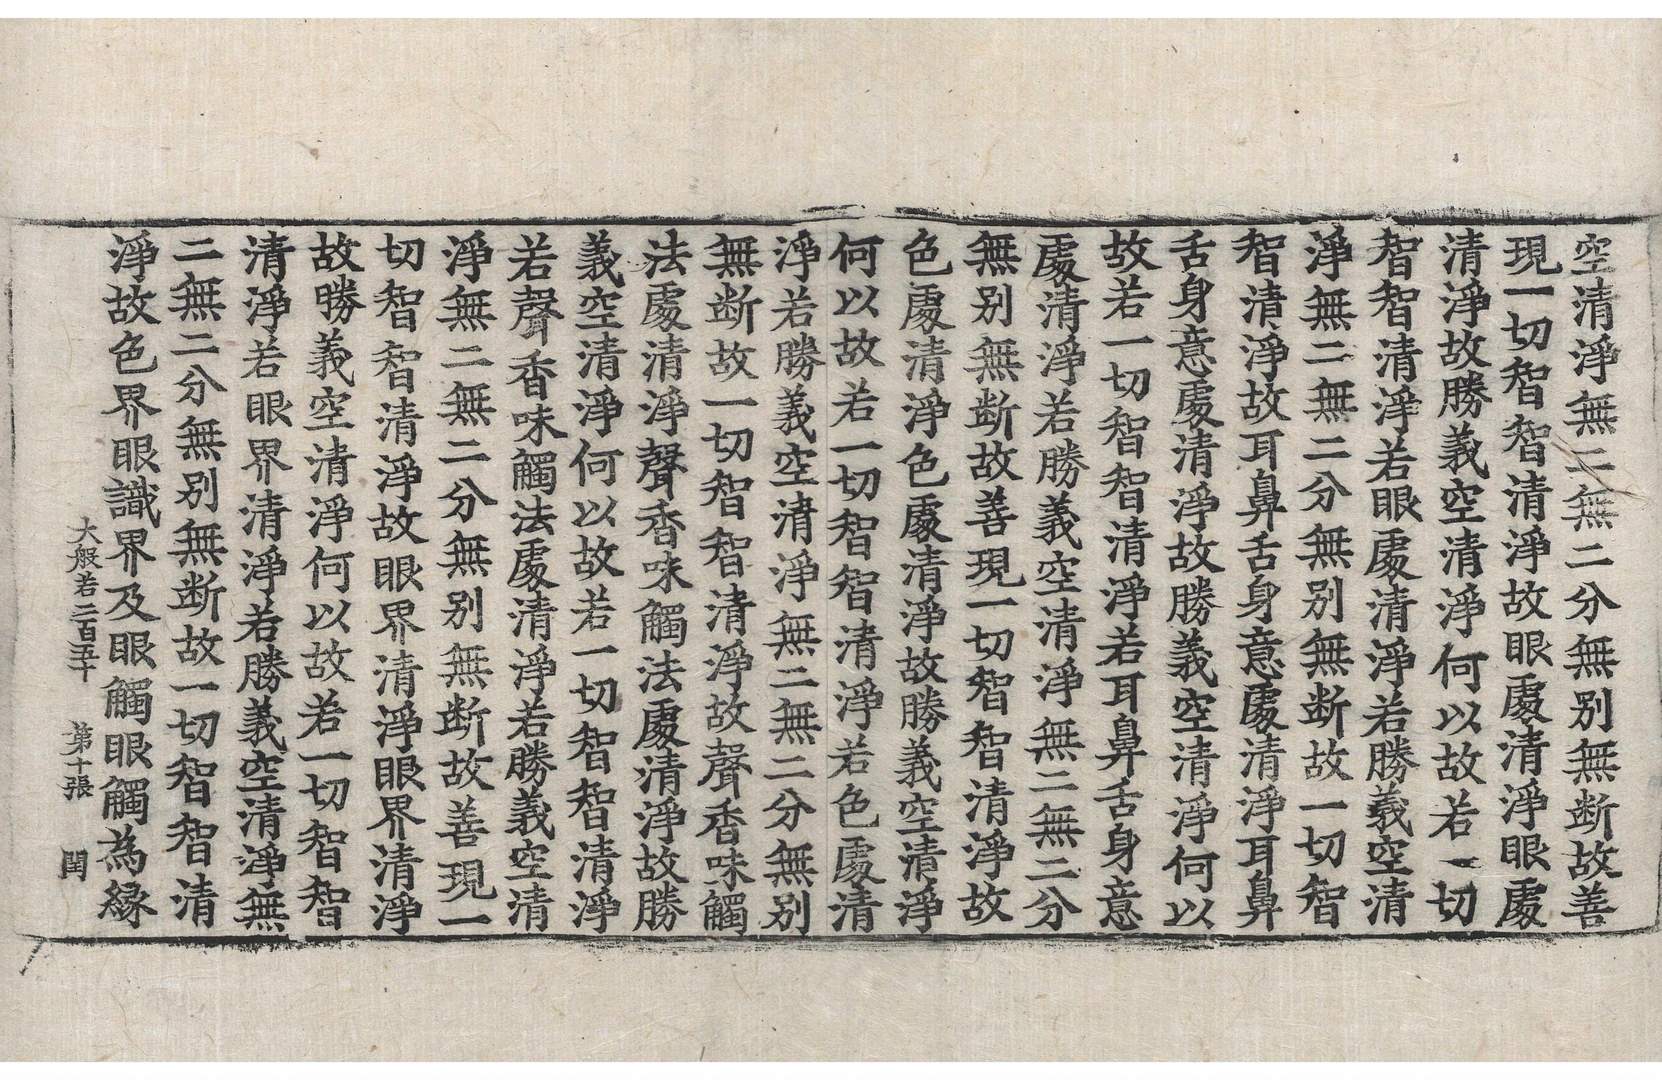 空清淨無二無二分無別無断故善
現一切智智清淨故眼處清淨眼處
清淨故勝義空清淨何以故若一切
智智清淨若眼處清淨若勝義空清
淨無二無二分無別無断故一切智
智清淨故耳鼻舌身意處清淨耳鼻
舌身意處清淨故勝義空清淨何以
故若一切智智清淨若耳鼻舌身意
處清淨若勝義空清淨無二無二分
無別無断故善現一切智智清淨故
色處清淨色處清淨故勝義空清淨
何以故若一切智智清淨若色處清
淨若勝義空清淨無二無二分無別
無断故一切智智清淨故聲香味觸
法處清淨聲香味觸法處清淨故勝
義空清淨何以故若一切智智清淨
若聲香味觸法處清淨若勝義空清
淨無二無二分無別無断故善現一
切智智清淨故眼界清淨眼界清淨
故勝義空清淨何以故若一切智智
清淨若眼界清淨若勝義空清淨無
二無二分無別無断故一切智智清
淨故色界眼識界及眼觸眼觸為緣
大般若二百五十 第十張 閏